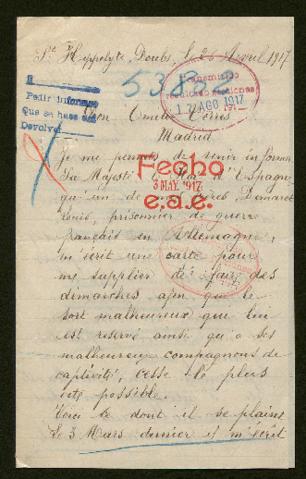 St Hippolyte, Doubs, le 26 Avril 1917
538
Transmitido
17 AGO 1917
Pedir informes
Que se hace
Devolver
Don Emilio Torres
Madrid
Je me permets de venir informer
Sa Majesté le Roi d'Espagne
Fecho
3 MAY. 1917
e.a.e.
qu'un de Demaret
Louis, prisonnier de guerre
français en Allemagne,
m'écrit une carte pour
me supplier de faire des
démarches afin que le
sort malheureux qui lui
est reservé ainsi qu'a ses
malheureux compagnons de
captivité, cesse le plus
vite possible.
Voici ce dont il se plaint
le 3 Mars dernier il m'écrit